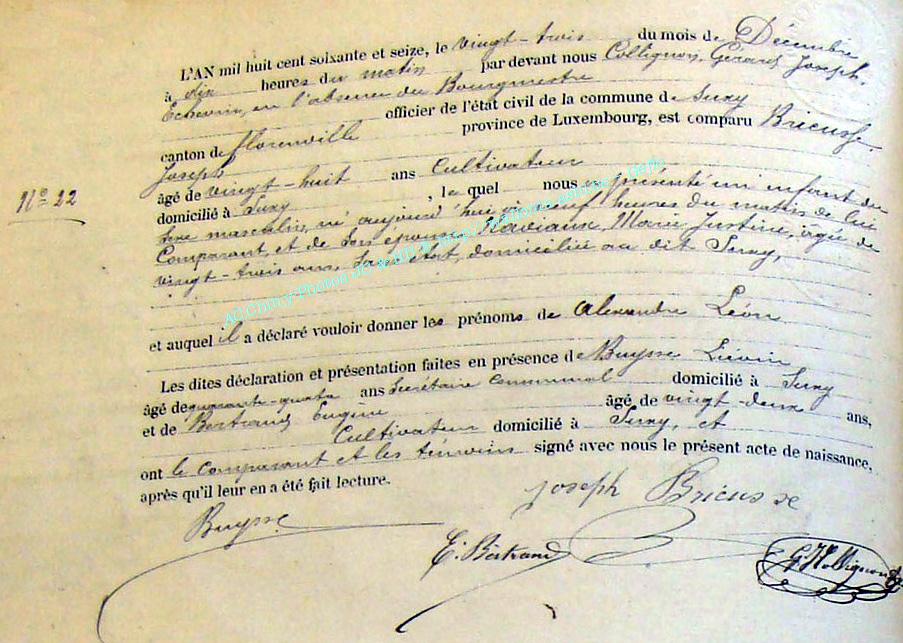 L'AN mil huit cent soixante et seize, le vingt-trois du mois de Décembre
à dix heures du matin par devant nous Collignon, Gérard Joseph
Echevin, en l'absence du Bourgmestre
officier de l'état civil de la commune de Suxy
canton de florenville province de Luxembourg, est comparu Bricusse
Joseph
âgé de vingt-huit ans Cultivateur
domicilié à Suxy, lequel nous a présenté un enfant du
N° 22
sexe masculin, né aujourd'hui à neuf heures du matin de lui
Comparant, et de son épouse Marie Justine, âgée de
vingt-trois ans, sans état, domiciliée au dit Suxy,
et auquel il a déclaré vouloir donner les prénoms de Alexandre Léon
Les dites déclaration et présentation faites en présence de Buysse Liévin
âgé de quarante-quatre ans Secrétaire Communal domicilié à Suxy
et de Bertrand Eugène âgé de vingt-deux ans,
Cultivateur domicilié à Suxy, et
ont le comparant et les témoins signé avec nous le présent acte de naissance,
après qu'il leur en a été fait lecture.
Joseph Bricusse
Buysse
E. Bertrand
G J Collignon